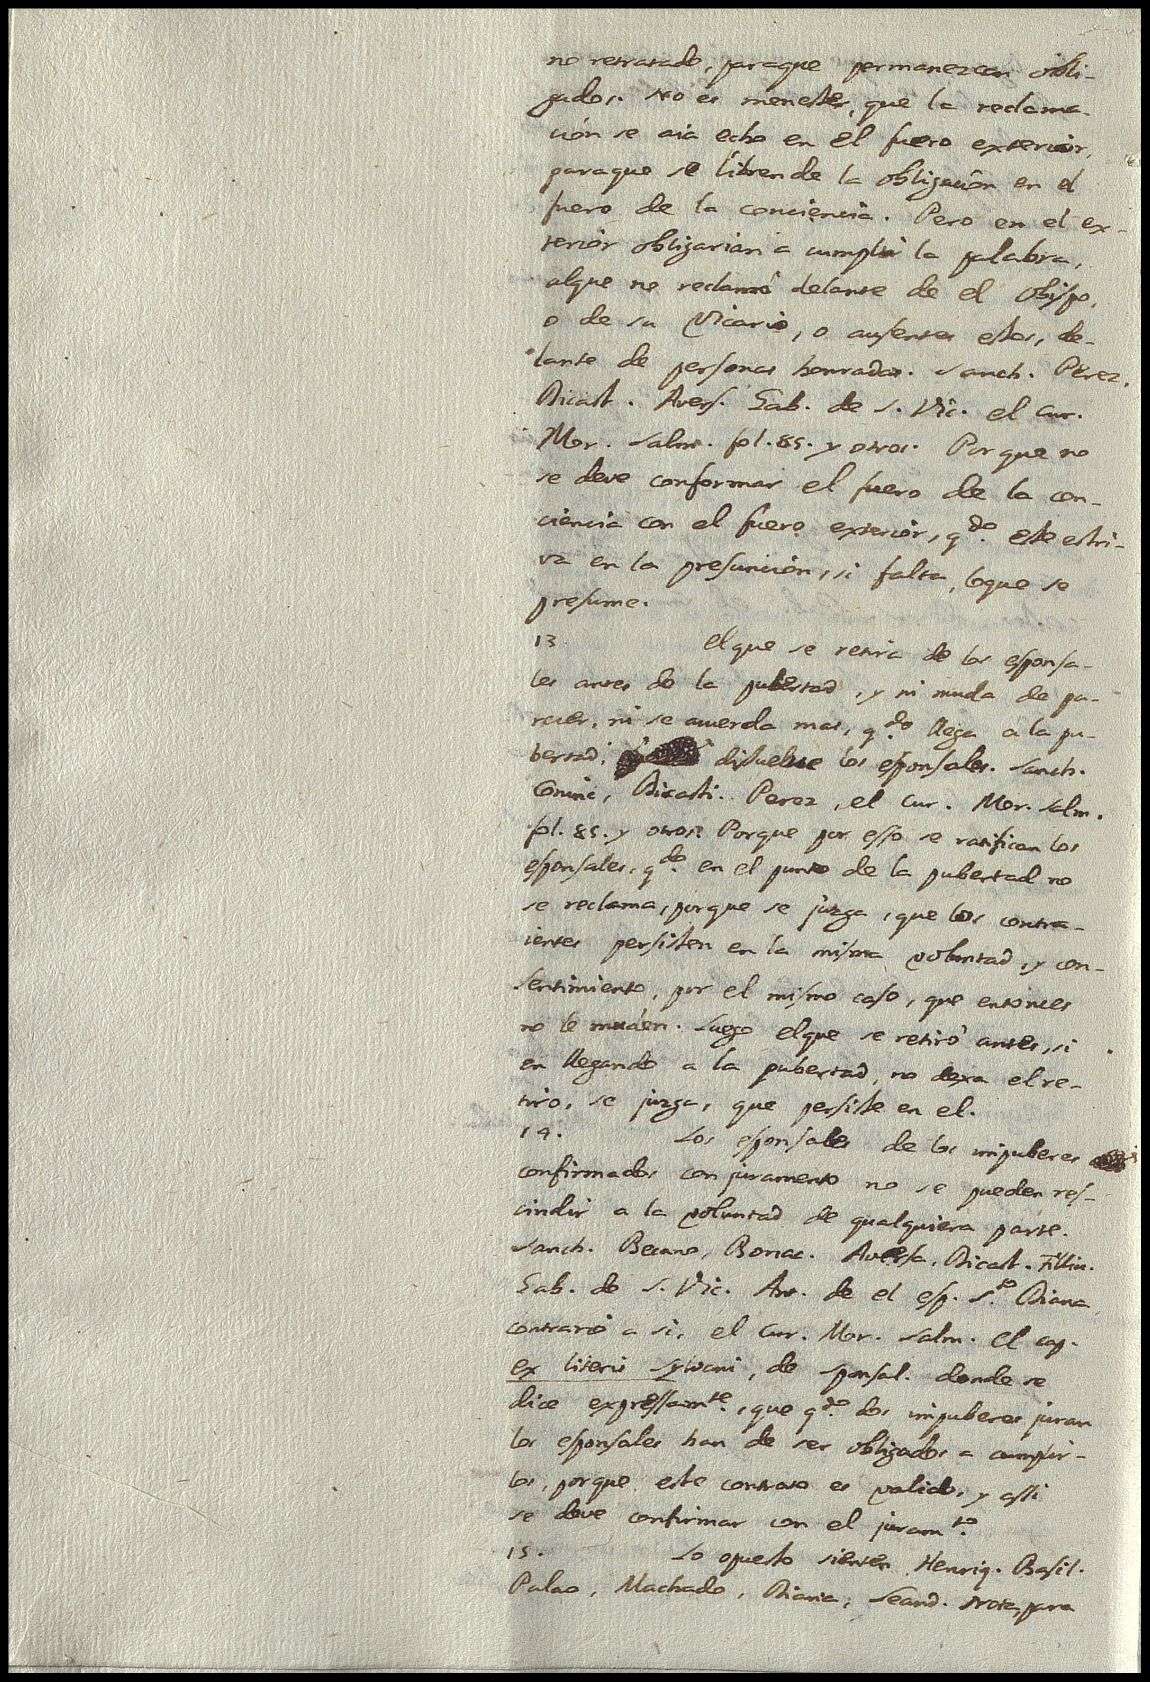 no retratado, paraque permanezcan obli-
gados. No es menester, que la reclama-
ción se aia echo en el fuero exterior,
paraque se libren de la obligación en el
fuero de la conciencia. Pero en el ex-
terior obligarian a cumplir la palabra,
alque no reclamó delante de el Obispo,
o de su Vicario, o ausentes estos, de-
lante de personas honradas. Sanch. Perez.
Dicast. Avers. Gab. de S. Vic. el Cur.
Mor. Salm. fol. 85. y otros. Porque no
se deve conformar el fuero de la con-
ciencia con el fuero exterior, qdo. este estri-
va en la presuncion, si falta, loque se
presume.
13. Elque se retira de los esponsa-
les antes de la pubertad, y ni muda de pa-
recer, ni se acuerda mas, qdo. llega a la pu-
bertad, disuelve los esponsales. Sanch.
Coninc, Dicasti. Perez, el Cur. Mor. Salm.
fol. 85. y otros. Porque por esso se ratifican los
esponsales, qdo. en el punto de la pubertad no
se reclama, porque se juzga, que los contra-
ientes persisten en la misma voluntad, y con-
sentimiento, por el mismo caso, que entonces
no le muden. Luego elque se retiró antes, si
en llegando a la pubertad, no dexa el re-
tiro, se juzga, que persiste en el.
14. Los esponsales de los impuberes
confirmados con juramento no se pueden res-
cindir a la voluntad de qualquiera parte.
Sanch. Becano, Bonac. Aversa, Dicast. Filliu.
Gab. de S. Vic. Ant. de el esp. Sto. Diana
contrario a si, el Cur. Mor. Salm. el cap.
ex literis Sylvani, de sponsal. donde se
dice expressamte., que qdo. dos impuberes juran
los esponsales han de ser obligados a cumplir-
los, porque este contrato es valido, y assi
se deve confirmar con el juramto.
15. Lo opuesto sienten Henriq. Basil.
Palao, Machado, Diana, Leand. Nota, para